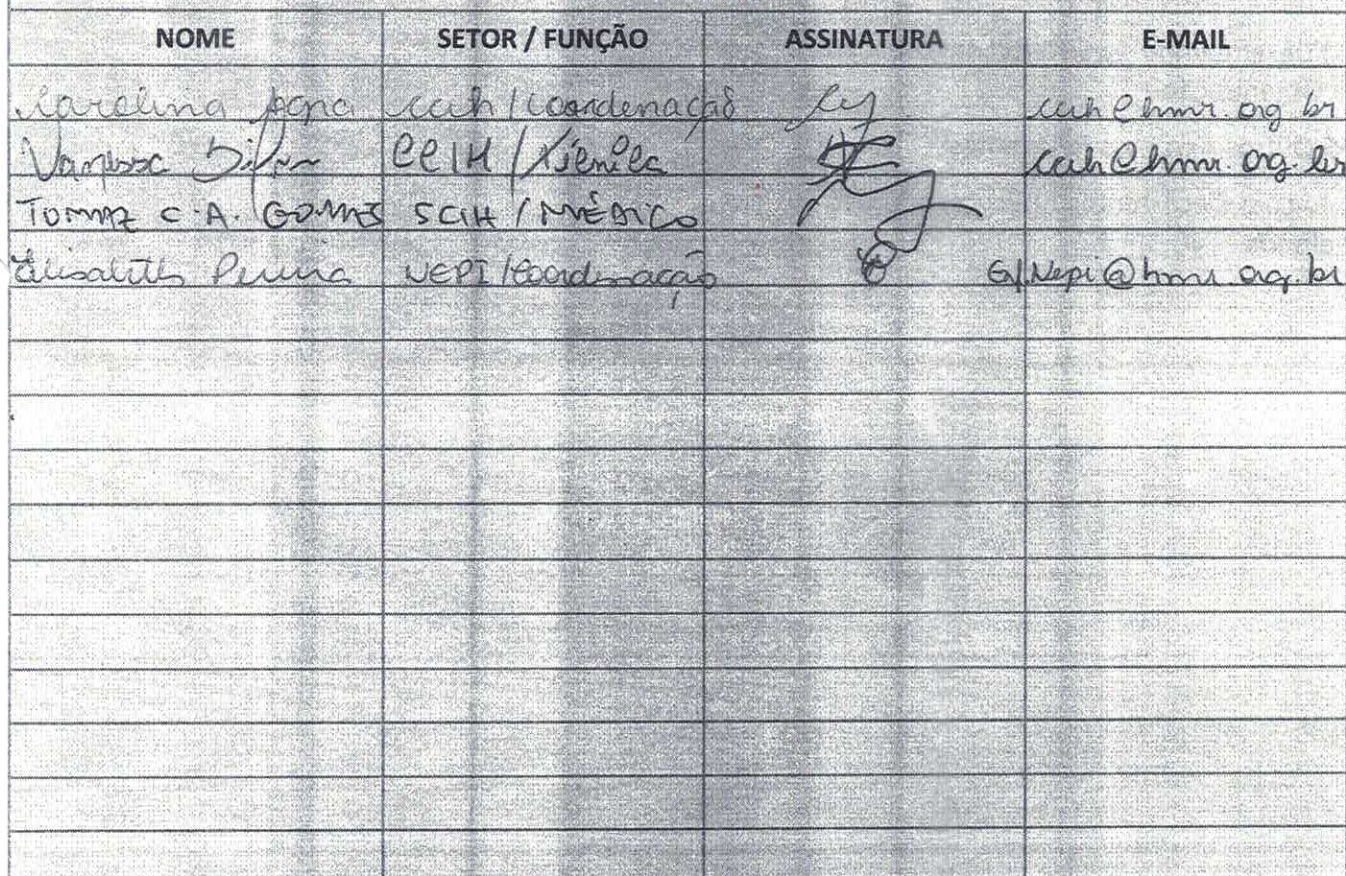 NOME SETOR / FUNÇÃO ASSINATURA E-MAIL
Carolina ccih / Coordenação ccih@hmr.org.br
Vanessa CCIH / ccih@hmr.org.br
TOMAZ C.A. GOMES SCIH / MÉDICO
Elisabeth NEPI / Coordenação Nepi@hmr.org.br